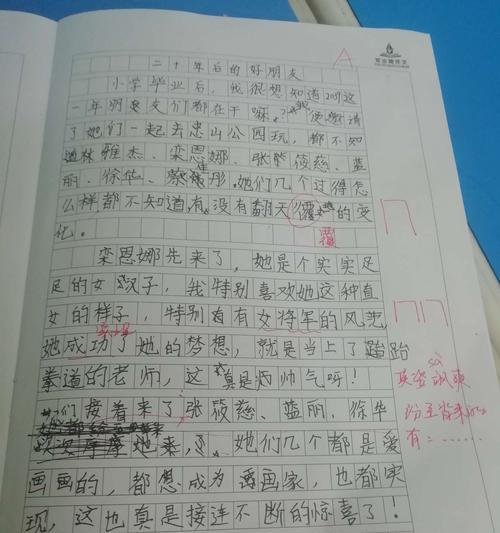 A
二十年后的好朋友
小学毕业后，我很想知道2039这
一年朋友们都在干嘛？我便邀请
了她们一起去忠山公园玩，都不知
道林雅杰、栾恩娜、张筱慈、蓝
丽、徐华、蔡彤她们几个过得怎
么样都不知道，有没有翻天覆地的变
覆
化。
栾恩娜先来了，她是个实实足
足的女汉子，我特别喜欢她这种直
女的样子，特别自有女将军的风光
她成功了她的梦想，就是当上了跆跆
拳道的老师，这真是炳帅气呀！
英姿飒爽
sà
接着来了张筱慈、蓝丽、徐华
纷至沓来
有：……
她们几个都是爱
画画的，都想成为画家，也都实
现，这也真是接连不断的惊喜了！